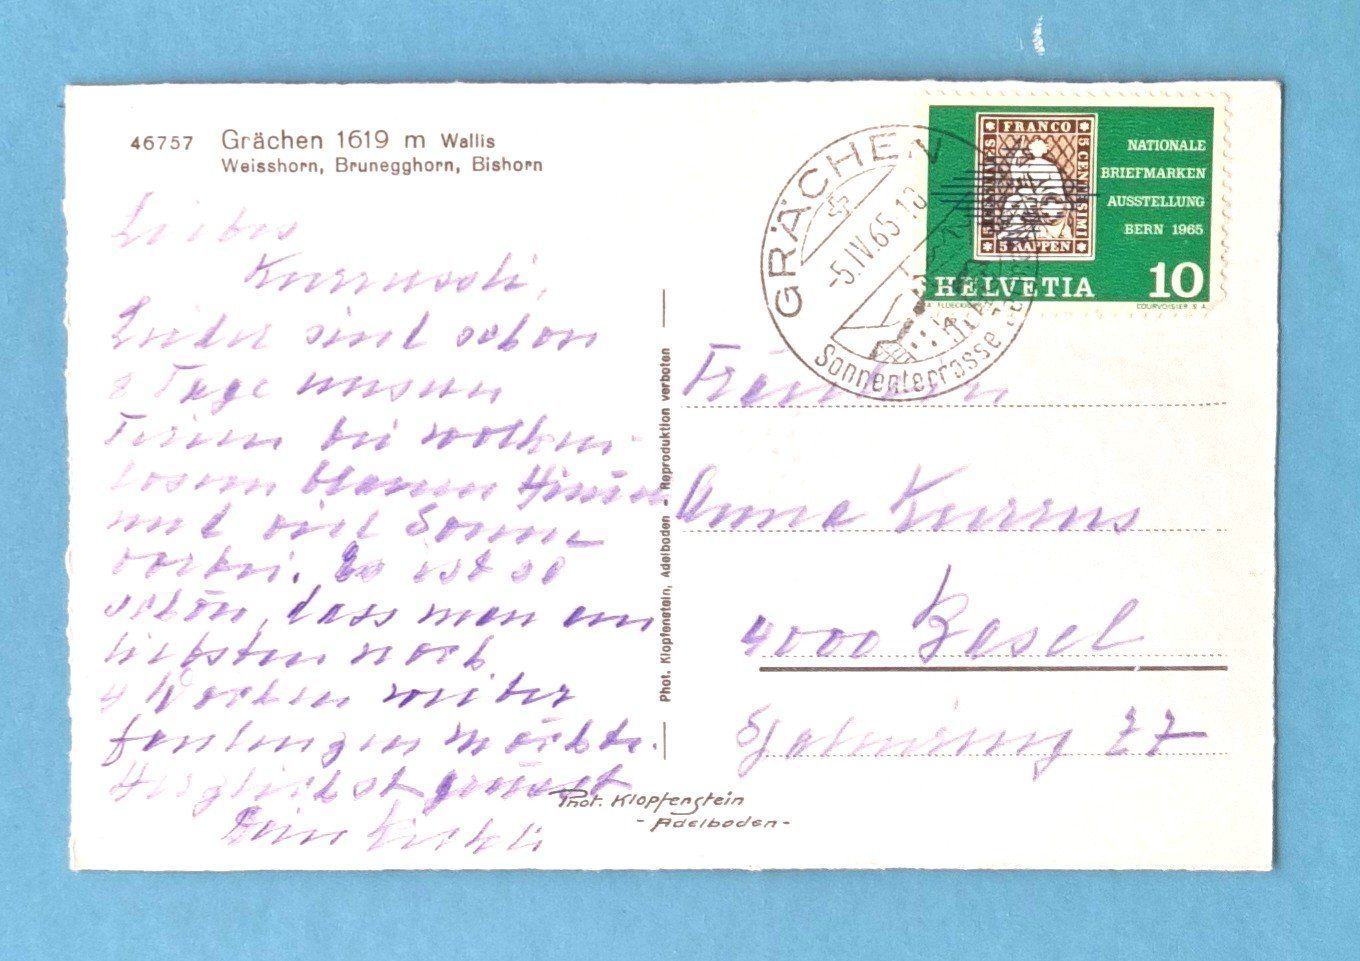 46757 Grächen 1619 m Wallis
Weisshorn, Brunegghorn, Bishorn
Liebes
Kurrussli,
Leider sind schon
8 Tage unsrer
Ferien bei wolken-
losem blauem Himmel
und viel Sonne
vorbei. Es ist so
schön, dass man am
liebsten noch
4 Wochen weiter
faulenzen möchte.
Herzlichst grüsst
Dein
Phot. Klopfenstein, Adelboden - Reproduktion verboten
Phot. Klopfenstein
- Adelboden -
GRÄCHEN
-5.IV.65.18
Sonnenterrasse
FRANCO
5 CENTESIMI
5 RAPPEN
NATIONALE
BRIEFMARKEN
AUSSTELLUNG
BERN 1965
HELVETIA 10
COURVOISIER S.A.
Fräulein
Anna Kurrus
4000 Basel
27